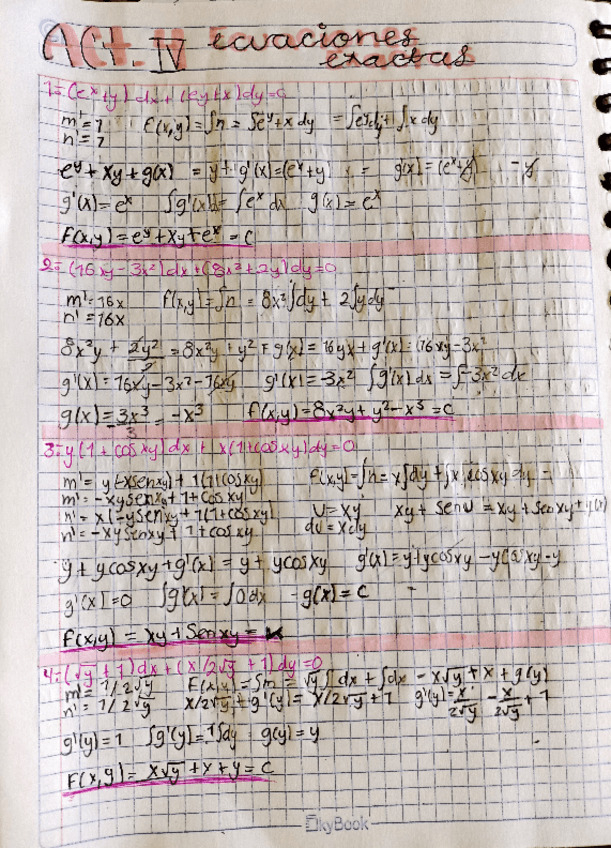 Act. IV ecuaciones
exactas
1= (e^x+y) dx + (e^y+x) dy=0
m'=1 F(x,y)=∫n = ∫e^y+x dy = ∫e^y dy + ∫x dy
n'=1
e^y + xy + g(x) = y + g'(x)=(e^x+y) = g(x) = (e^x+y) -y
g'(x)=e^x ∫g'(x)= ∫e^x dx g(x)=e^x
F(x,y)=e^y+xy+e^x = C
2= (16xy-3x²)dx+(8x²+2y)dy=0
m'=16x F(x,y)=∫n = 8x²∫dy + 2∫ydy
n'=16x
8x²y + 2y²/2 = 8x²y + y² + g(x) = 16yx+g'(x)=(16xy-3x²
g'(x)=16xy-3x²-16xy g'(x)=-3x² ∫g'(x)dx=∫-3x²dx
g(x)=-3x³/3=-x³ F(x,y)=8x²y+y²-x³=C
3= y(1+cosxy)dx + x(1+cosxy)dy=0
m'=y(-xsenxy)+1(1+cosxy) F(x,y)=∫n=x∫dy+∫x cosxy dy =
m'=-xysenxy+1+cosxy
n'=x(-ysenxy)+1(1+cosxy) U=xy xy+senu = xy+senxy+g(x)
n'=-xysenxy+1+cosxy du=xdy
y+ycosxy+g'(x)=y+ycosxy g'(x)=y+ycosxy-ycosxy-y
g'(x)=0 ∫g'(x)=∫0dx -g(x)=C
F(x,y)=xy+senxy=K
4=(√y+1)dx+(x/2√y+1)dy=0
m'=1/2√y F(x,y)=∫m=√y∫dx+∫dx = x√y+x+g(y)
n'=1/2√y x/2√y+g'(y)=x/2√y+1 g'(y)=x/2√y - x/2√y +1
g'(y)=1 ∫g'(y)=1∫dy g(y)=y
F(x,y)=x√y+x+y=C
SkyBook